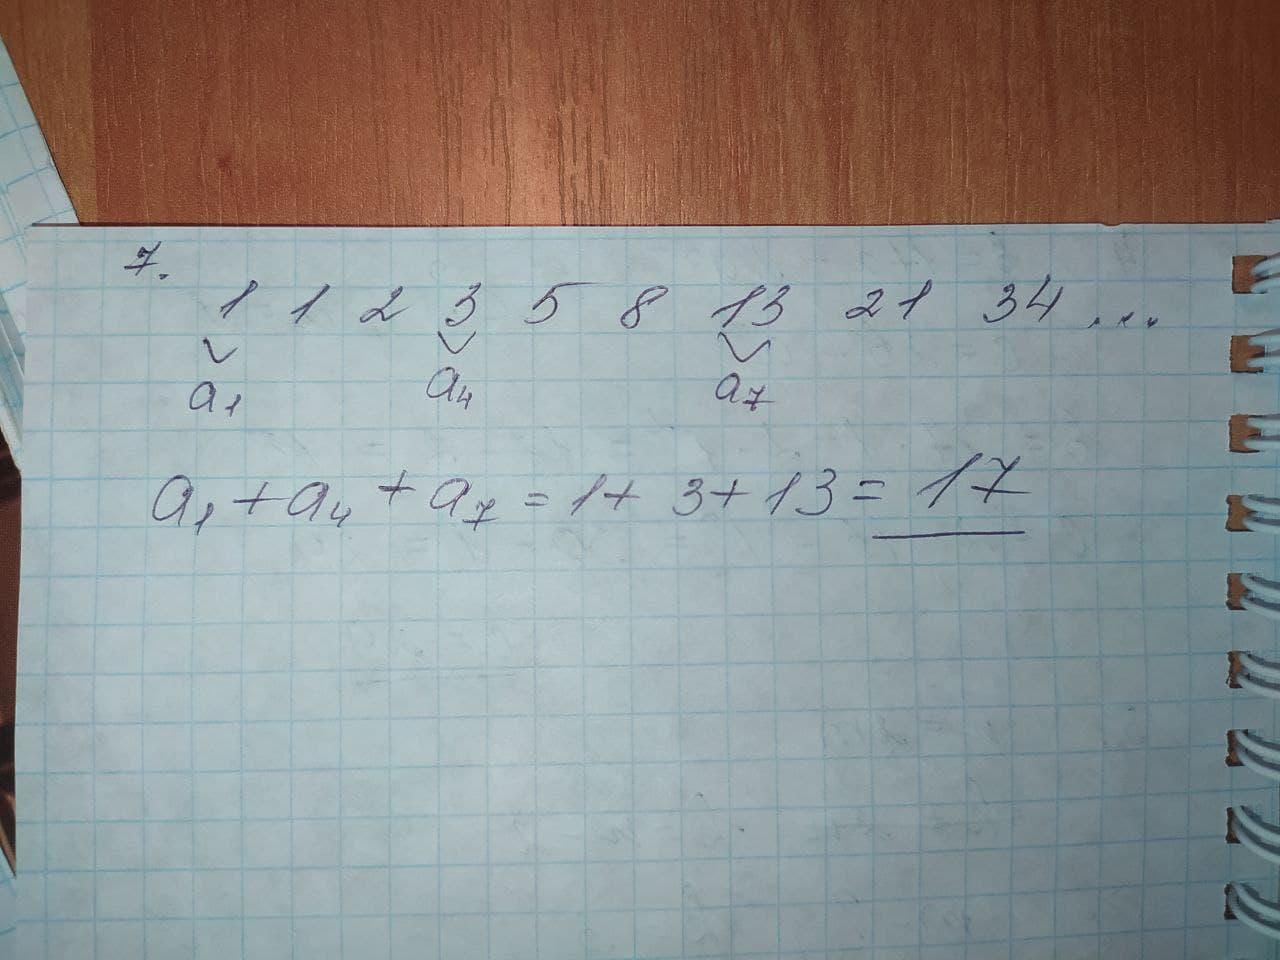 7.
1 1 2 3 5 8 13 21 34 ...
a₁ a₄ a₇
a₁ + a₄ + a₇ = 1 + 3 + 13 = 17